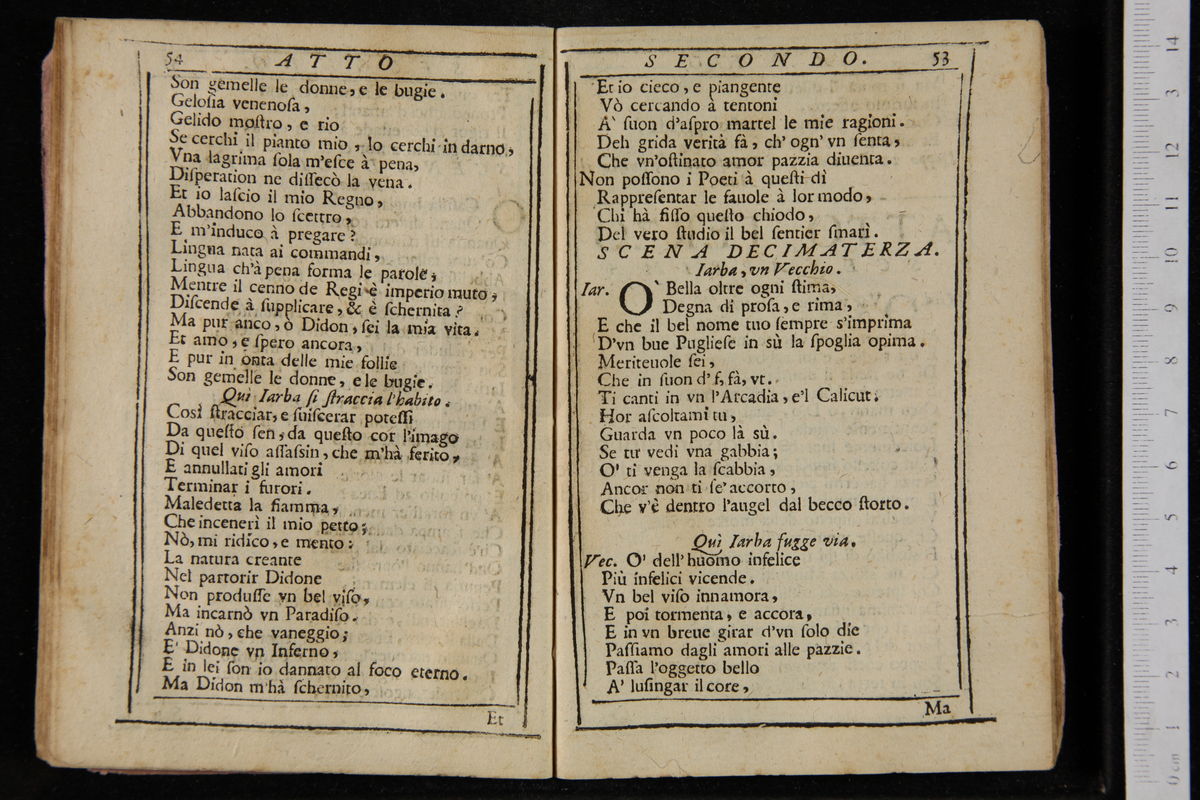 54 ATTO
Son gemelle le donne, e le bugie.
Gelosia venenosa,
Gelido mostro, e rio
Se cerchi il pianto mio, lo cerchi in darno,
Vna lagrima sola m'esce à pena,
Disperation ne dissecò la vena.
Et io lascio il mio Regno,
Abbandono lo scettro,
E m'induco à pregare?
Lingua nata ai commandi,
Lingua ch'à pena forma le parole,
Mentre il cenno de Regi è imperio muto,
Discende à supplicare, & è schernita?
Ma pur anco, ò Didon, sei la mia vita.
Et amo, e spero ancora,
E pur in onta delle mie follie
Son gemelle le donne, e le bugie.
Quì Iarba si straccia l'habito.
Così stracciar, e suiscerar potessi
Da questo sen, da questo cor l'imago
Di quel viso assassin, che m'hà ferito,
E annullati gli amori
Terminar i furori.
Maledetta la fiamma,
Che incenerì il mio petto;
Nò, mi ridico, e mento:
La natura creante
Nel partorir Didone
Non produsse vn bel viso,
Ma incarnò vn Paradiso.
Anzi nò, che vaneggio;
E' Didone vn Inferno,
E in lei son io dannato al foco eterno.
Ma Didon m'hà schernito,
Et
SECONDO. 53
Et io cieco, e piangente
Vò cercando à tentoni
A' suon d'aspro martel le mie ragioni.
Deh grida verità fà, ch'ogn'vn senta,
Che vn'ostinato amor pazzia diuenta.
Non possono i Poeti à questi dì
Rappresentar le fauole à lor modo,
Chi hà fisso questo chiodo,
Del vero studio il bel sentier smarì.
SCENA DECIMATERZA.
Iarba, vn Vecchio.
Iar. O' Bella oltre ogni stima,
Degna di prosa, e rima,
E che il bel nome tuo sempre s'imprima
D'vn bue Pugliese in sù la spoglia opima.
Meriteuole sei,
Che in suon d' f, fà, vt.
Ti canti in vn l'Arcadia, e'l Calicut.
Hor ascoltami tu,
Guarda vn poco là sù.
Se tu vedi vna gabbia;
O' ti venga la scabbia,
Ancor non ti se' accorto,
Che v'è dentro l'augel dal becco storto.
Quì Iarba fugge via.
Vec. O' dell'huomo infelice
Più infelici vicende.
Vn bel viso innamora,
E poi tormenta, e accora,
E in vn breue girar d'vn solo die
Passiamo dagli amori alle pazzie.
Passa l'oggetto bello
A' lusingar il core,
Ma
14
13
12
11
10
9
8
7
6
5
4
3
2
1
0 cm